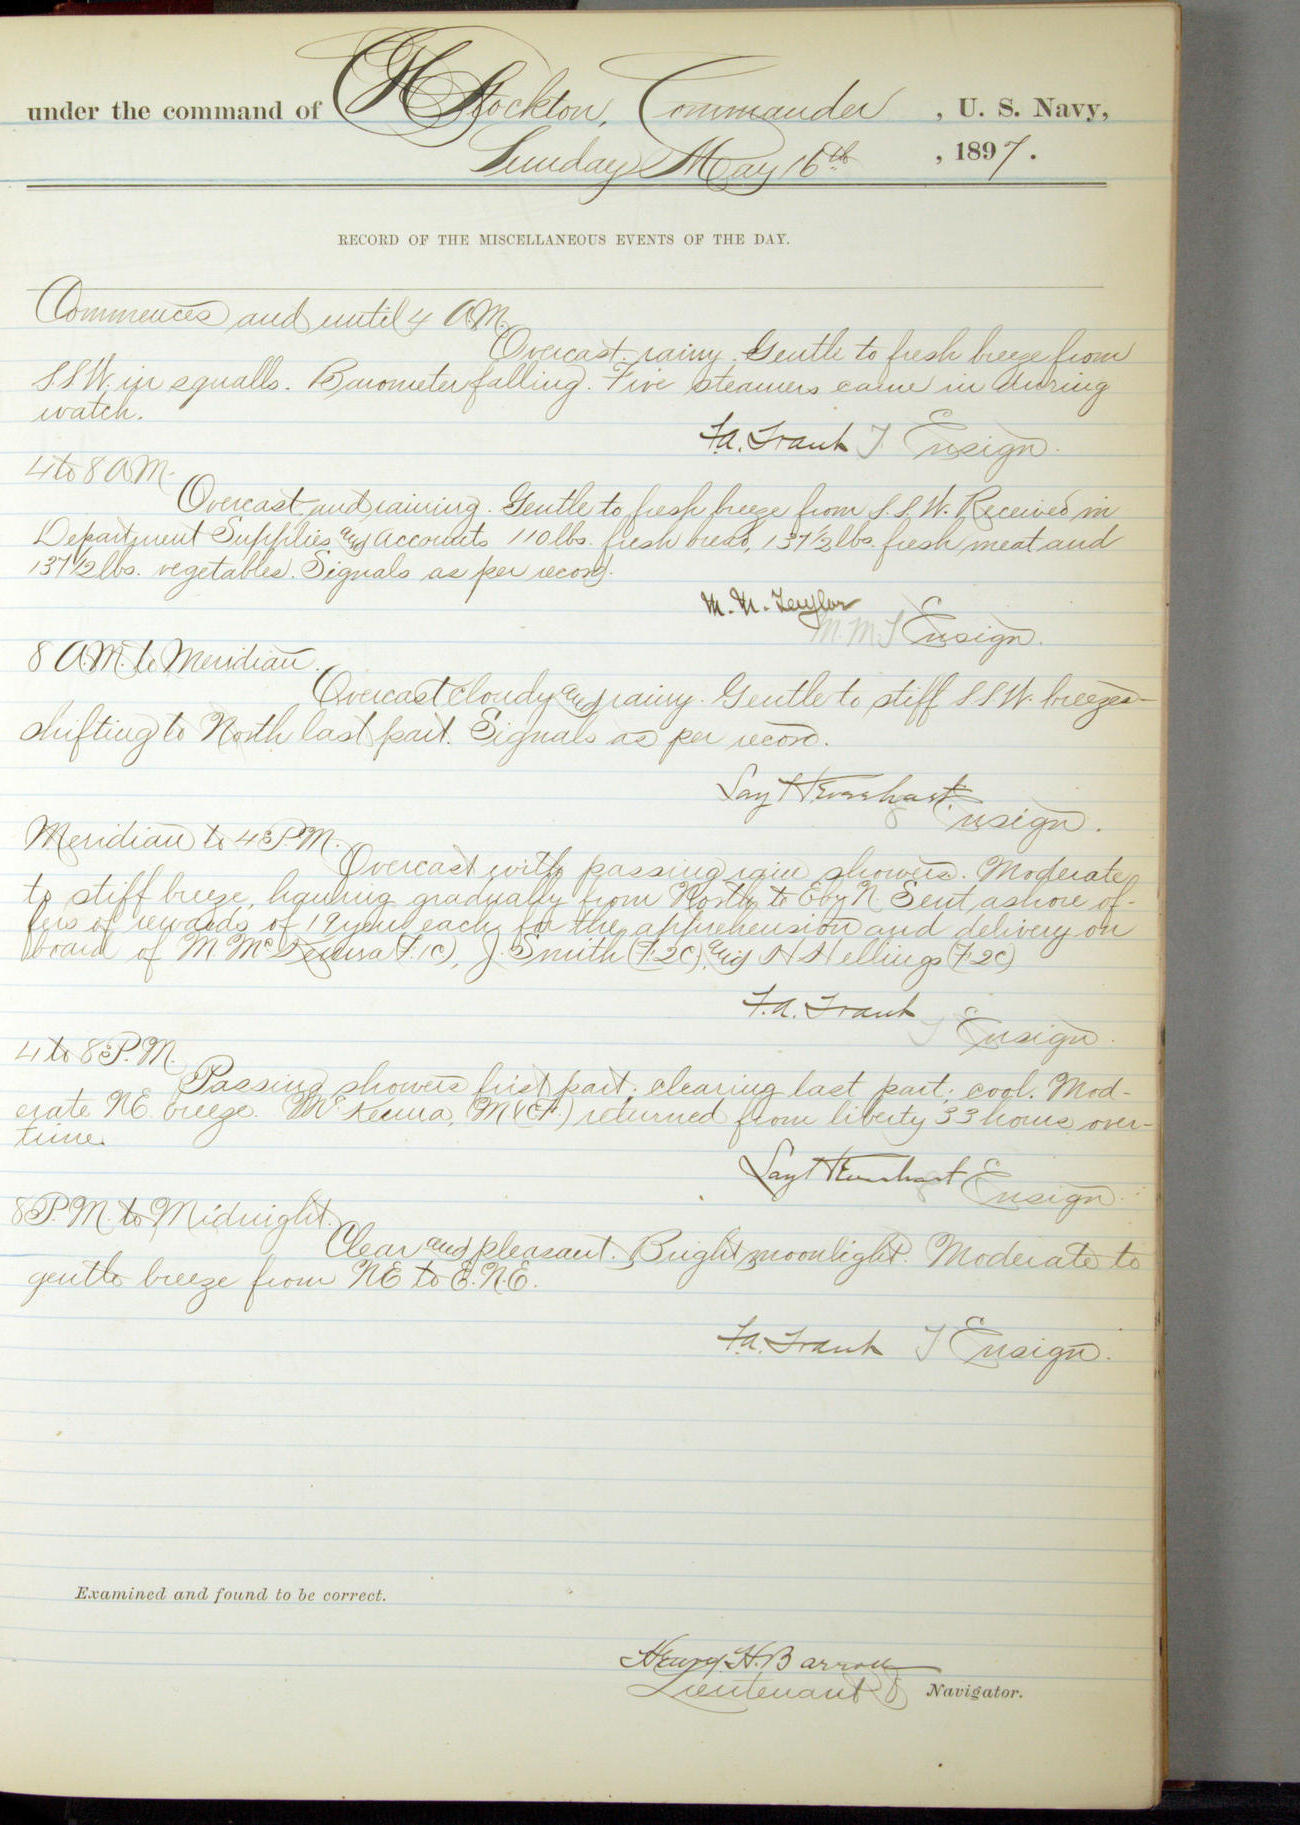 under the command of C H Stockton, Commander , U. S. Navy,
Sunday May 16th , 1897.
RECORD OF THE MISCELLANEOUS EVENTS OF THE DAY.
Commences and until 4 A.M.
Overcast rainy. Gentle to fresh breeze from
S.S.W. in squalls. Barometer falling. Five steamers came in during
watch.
F.A. Traut Ensign.
4 to 8 A.M.
Overcast and raining. Gentle to fresh breeze from S.S.W. Received in
Department Supplies and Accounts 110 lbs. fresh bread, 137 1/2 lbs. fresh meat and
137 1/2 lbs. vegetables. Signals as per record.
M. M. Taylor
M.M.T Ensign.
8 A.M. to Meridian.
Overcast cloudy and rainy. Gentle to stiff S.S.W. breezes
shifting to North last part. Signals as per record.
Lay H Everhart
Ensign.
Meridian to 4 P.M.
Overcast with passing rain showers. Moderate
to stiff breeze, hauling gradually from North to E by N. Sent ashore of-
fers of rewards of 19 yen each for the apprehension and delivery on
board of M Mc Kenna (F. 1c), J. Smith (F. 2c), and H Hellings (F 2c)
F.A. Traut
Ensign.
4 to 8 P.M.
Passing showers first part; clearing last part; cool. Mod-
erate NE. breeze. Mc Kenna, M (1c F.) returned from liberty 33 hours over-
time.
Lay H Everhart Ensign.
8 P.M. to Midnight.
Clear and pleasant. Bright moonlight. Moderate to
gentle breeze from NE to E.N.E.
F.A. Traut Ensign.
Examined and found to be correct.
Henry H. Barroll
Lieutenant Navigator.